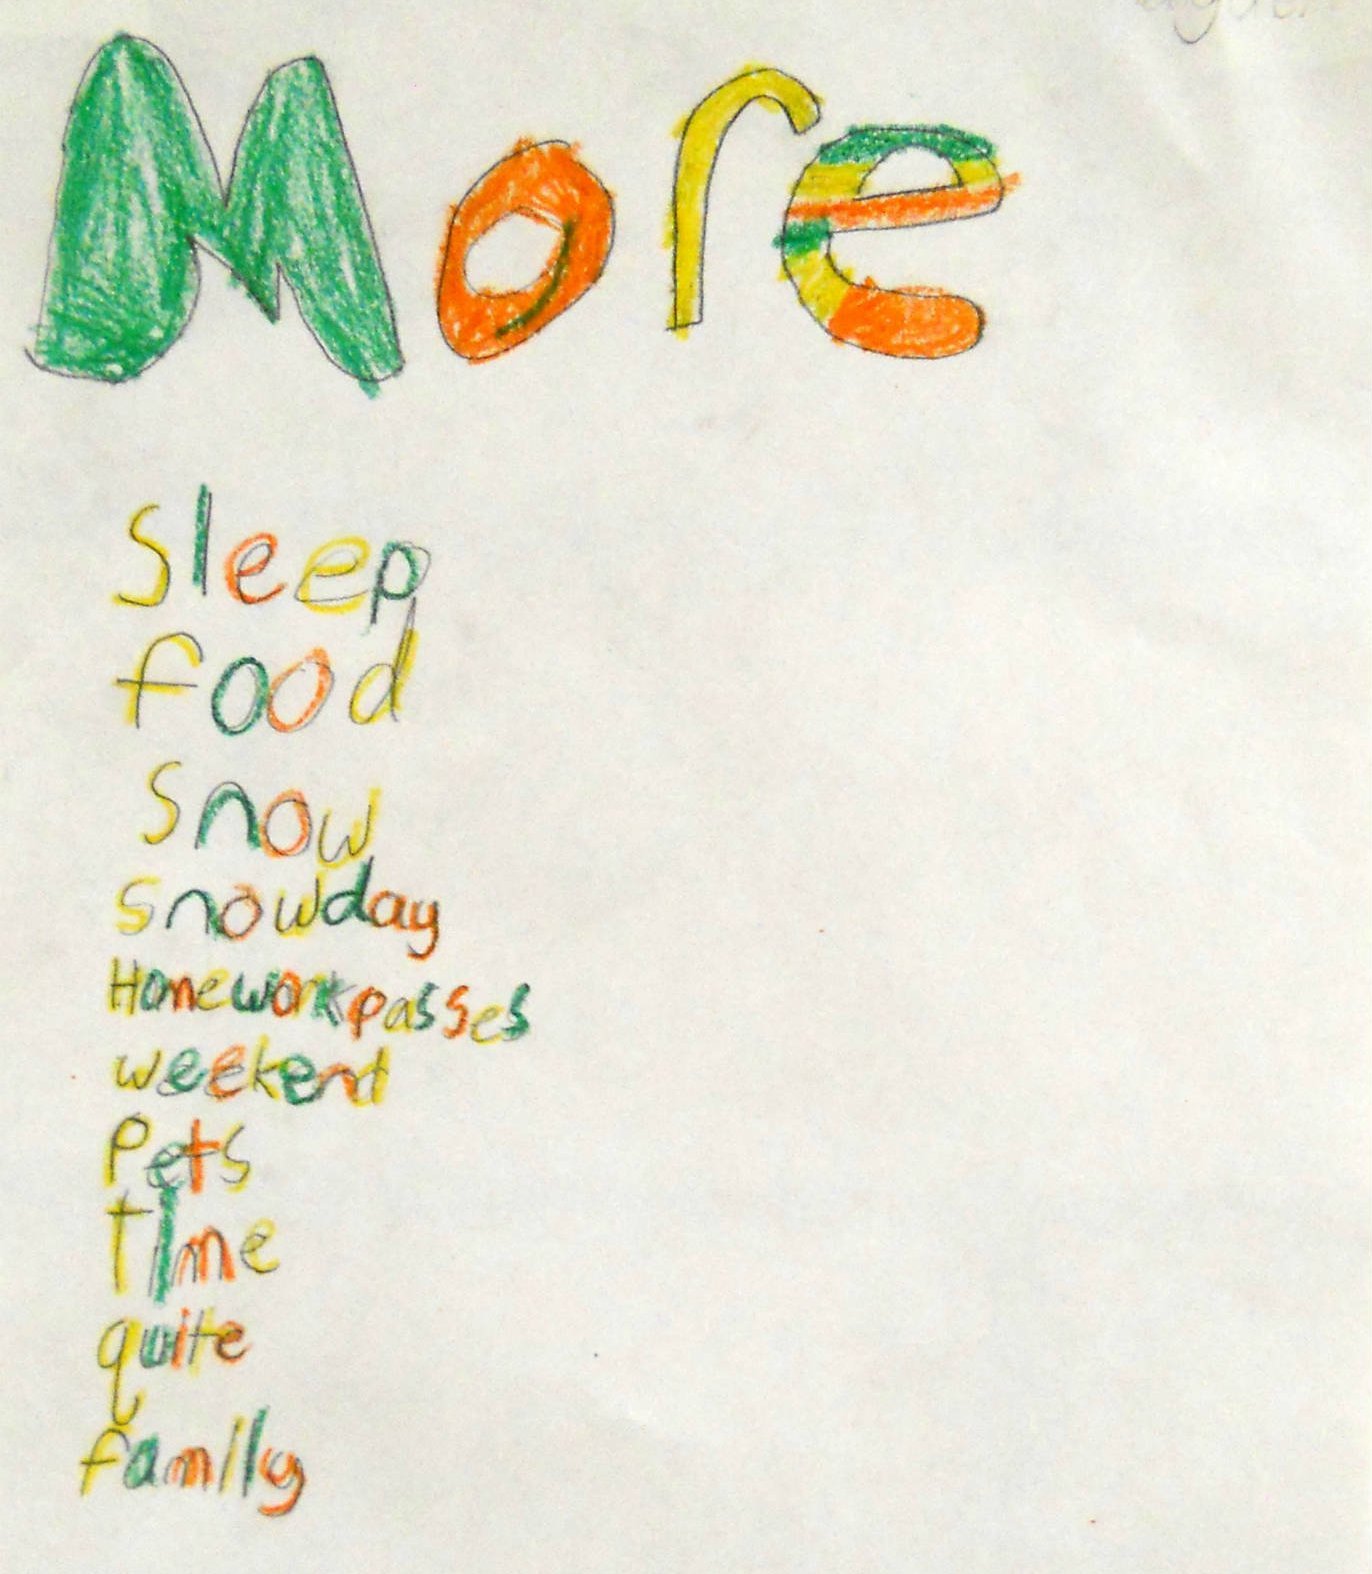 More
Sleep
food
snow
snowday
Homeworkpasses
weekend
Pets
time
quite
family